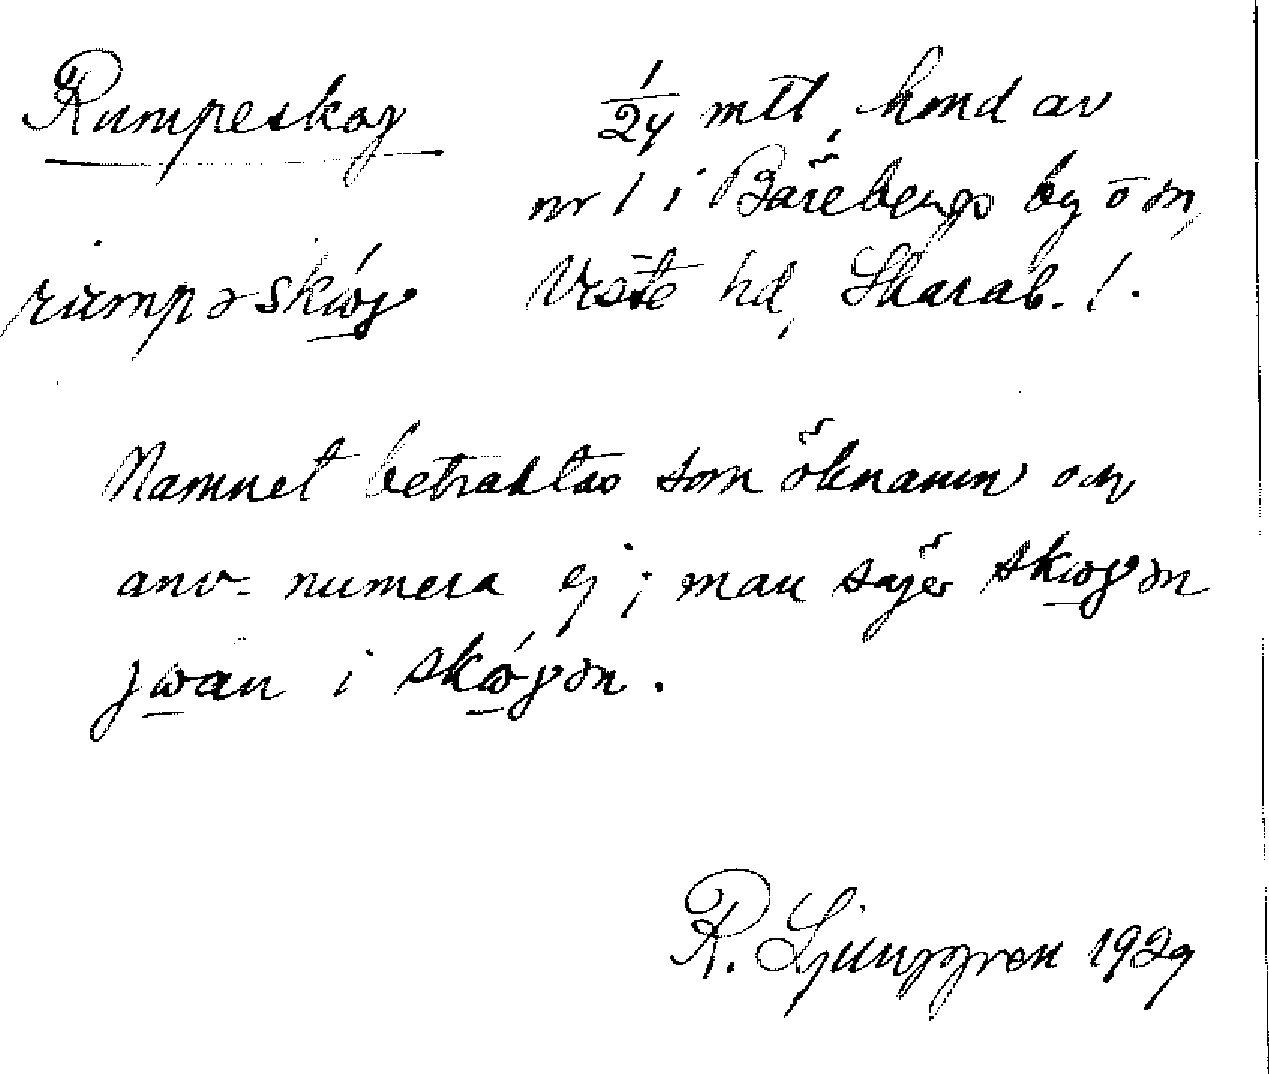 Rumpeskog
1/24 mtl, hmd av
nr 1 i Bärebergs by o sn,
Viste hd, Skarab. l.
rùmpəskóg
Namnet betraktas som öknamn och
anv. numera ej; man säjer skogən
i skógən.
R. Ljunggren 1929